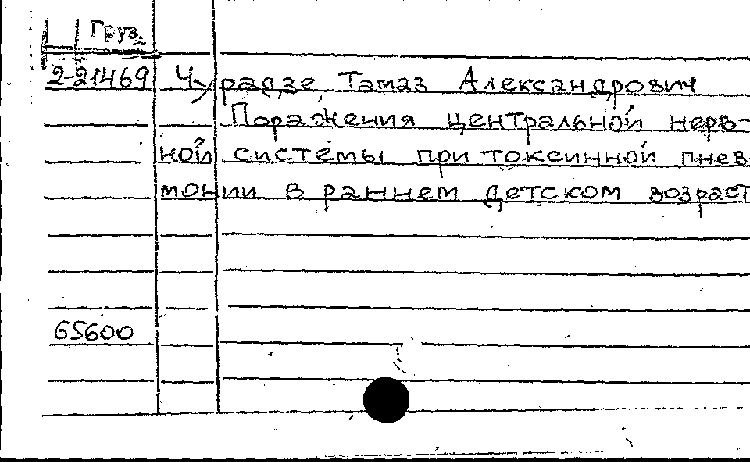 Груз.
2-21469 Чурадзе Тамаз Александрович
Поражения центральной нерв-
ной системы при токсинной пнев
монии в раннем детском возраст
65600